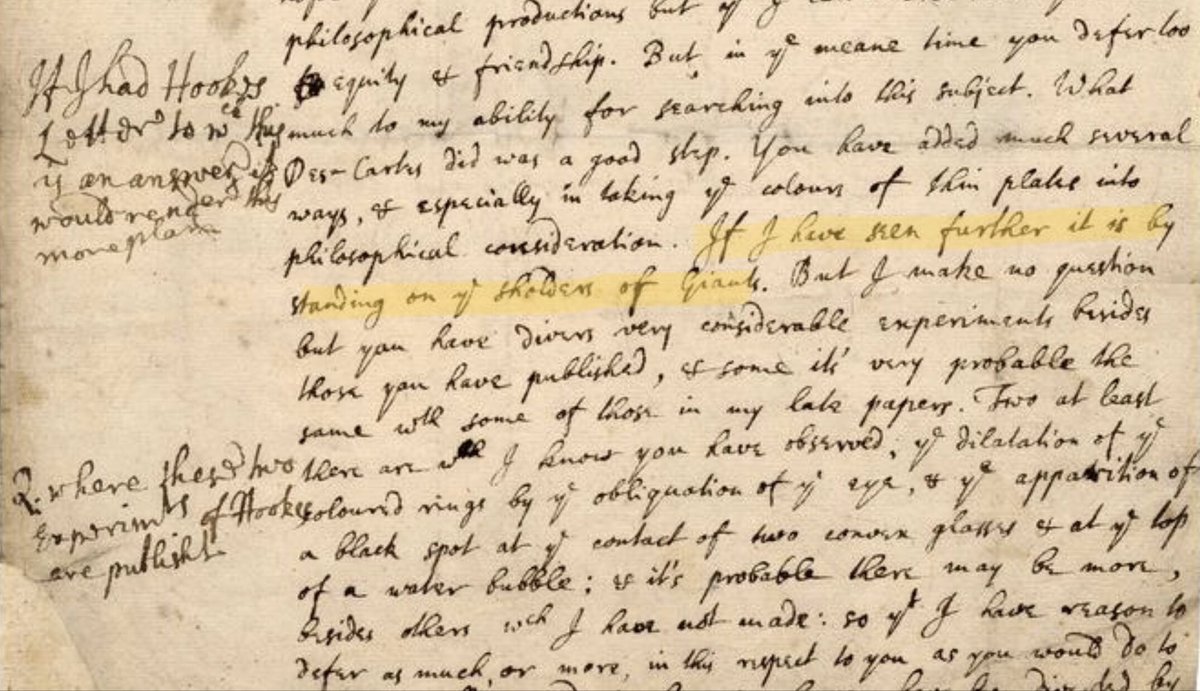 philosophical productions but yᵉ
to equity & friendship. But in yᵉ meane time you defer too
much to my ability for searching into this subject. What
Des-Cartes did was a good step. You have added much several
ways, & especially in taking yᵉ colours of thin plates into
philosophical consideration. If I have seen further it is by
standing on yᵉ sholders of Giants. But I make no question
but you have divers very considerable experiments besides
those you have published, & some it's very probable the
same wᵗʰ some of those in my late papers. Two at least
there are wᶜʰ I know you have observed, yᵉ dilatation of yᵉ
coloured rings by yᵉ obliquation of yᵉ eye, & yᵉ apparition of
a black spot at yᵉ contact of two convex glasses & at yᵉ top
of a water bubble; & it's probable there may be more,
besides others wᶜʰ I have not made: so yᵗ I have reason to
defer as much, or more, in this respect to you as you would do to
If I had Hookes
Letter to wᶜʰ this
is an answer it
would render this
more plain
Q. where these two
experimᵗˢ of Hookes
are publisht